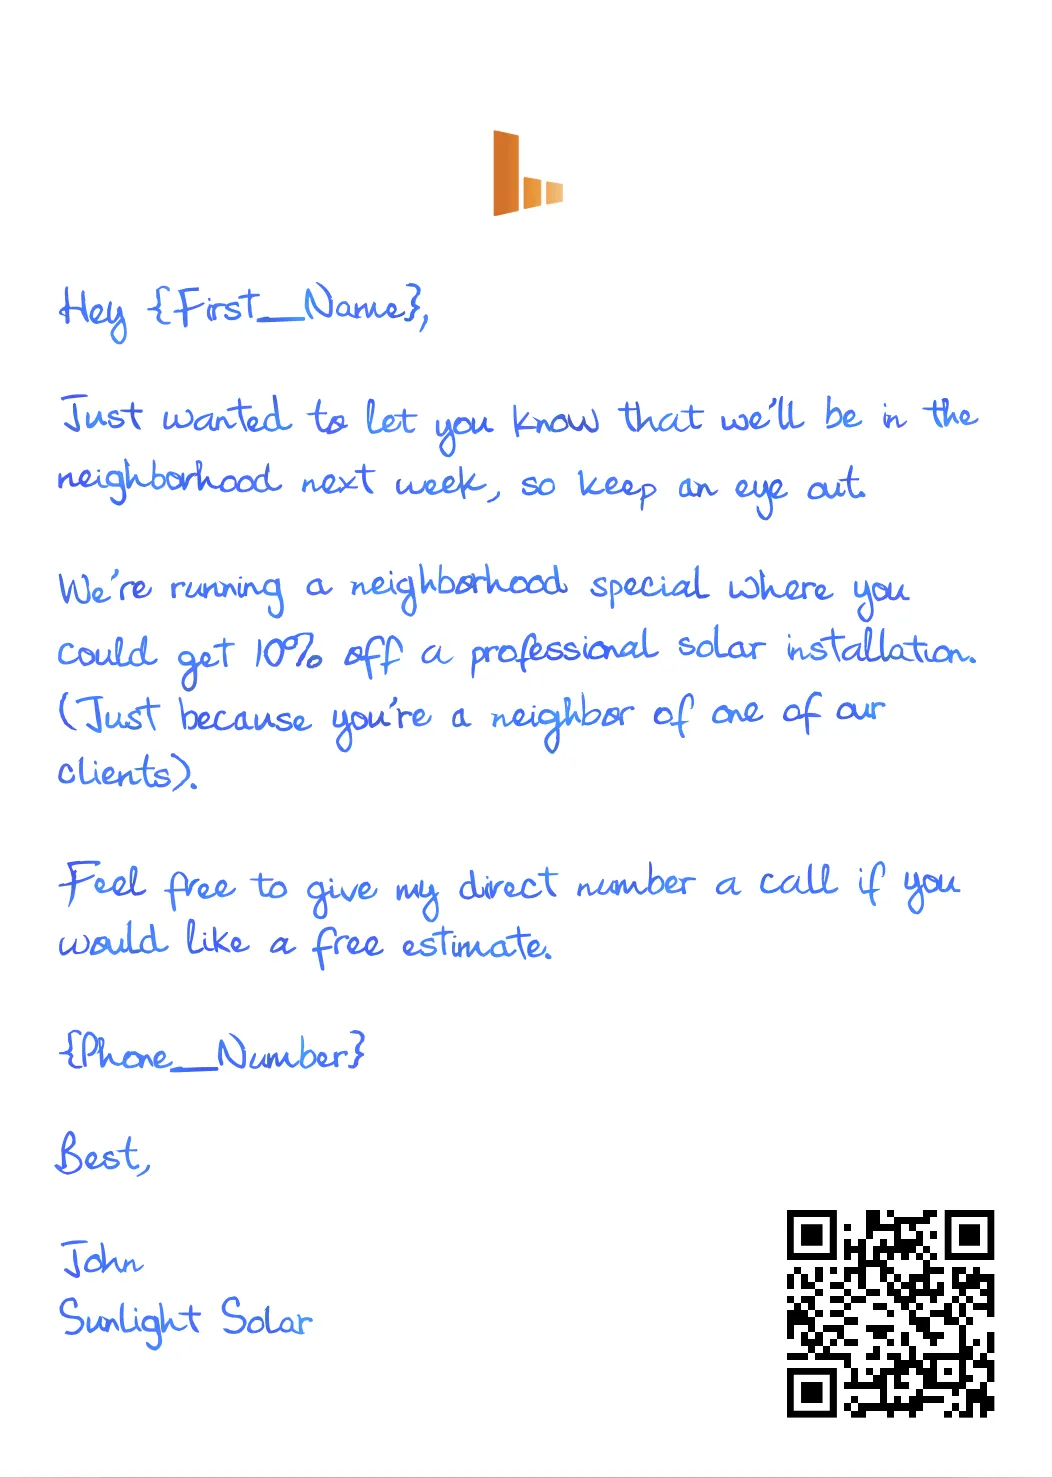 Hey {First__Name},
Just wanted to let you know that we'll be in the
neighborhood next week, so keep an eye out.
We're running a neighborhood special where you
could get 10% off a professional solar installation.
(Just because you're a neighbor of one of our
clients).
Feel free to give my direct number a call if you
would like a free estimate.
{Phone__Number}
Best,
John
Sunlight Solar